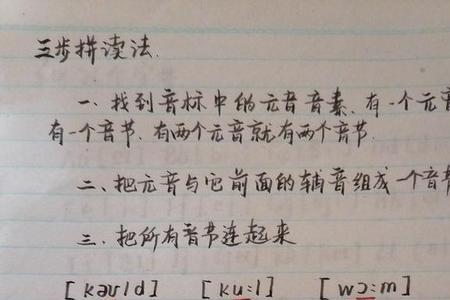 三步拼读法.
一、找到音标中的元音音素、有一个元音
有一个音节、有两个元音就有两个音节.
二、把元音与它前面的辅音组成一个音节
三、把所有音节连起来
[kəʊld] [ku:l] [wɔ:m]